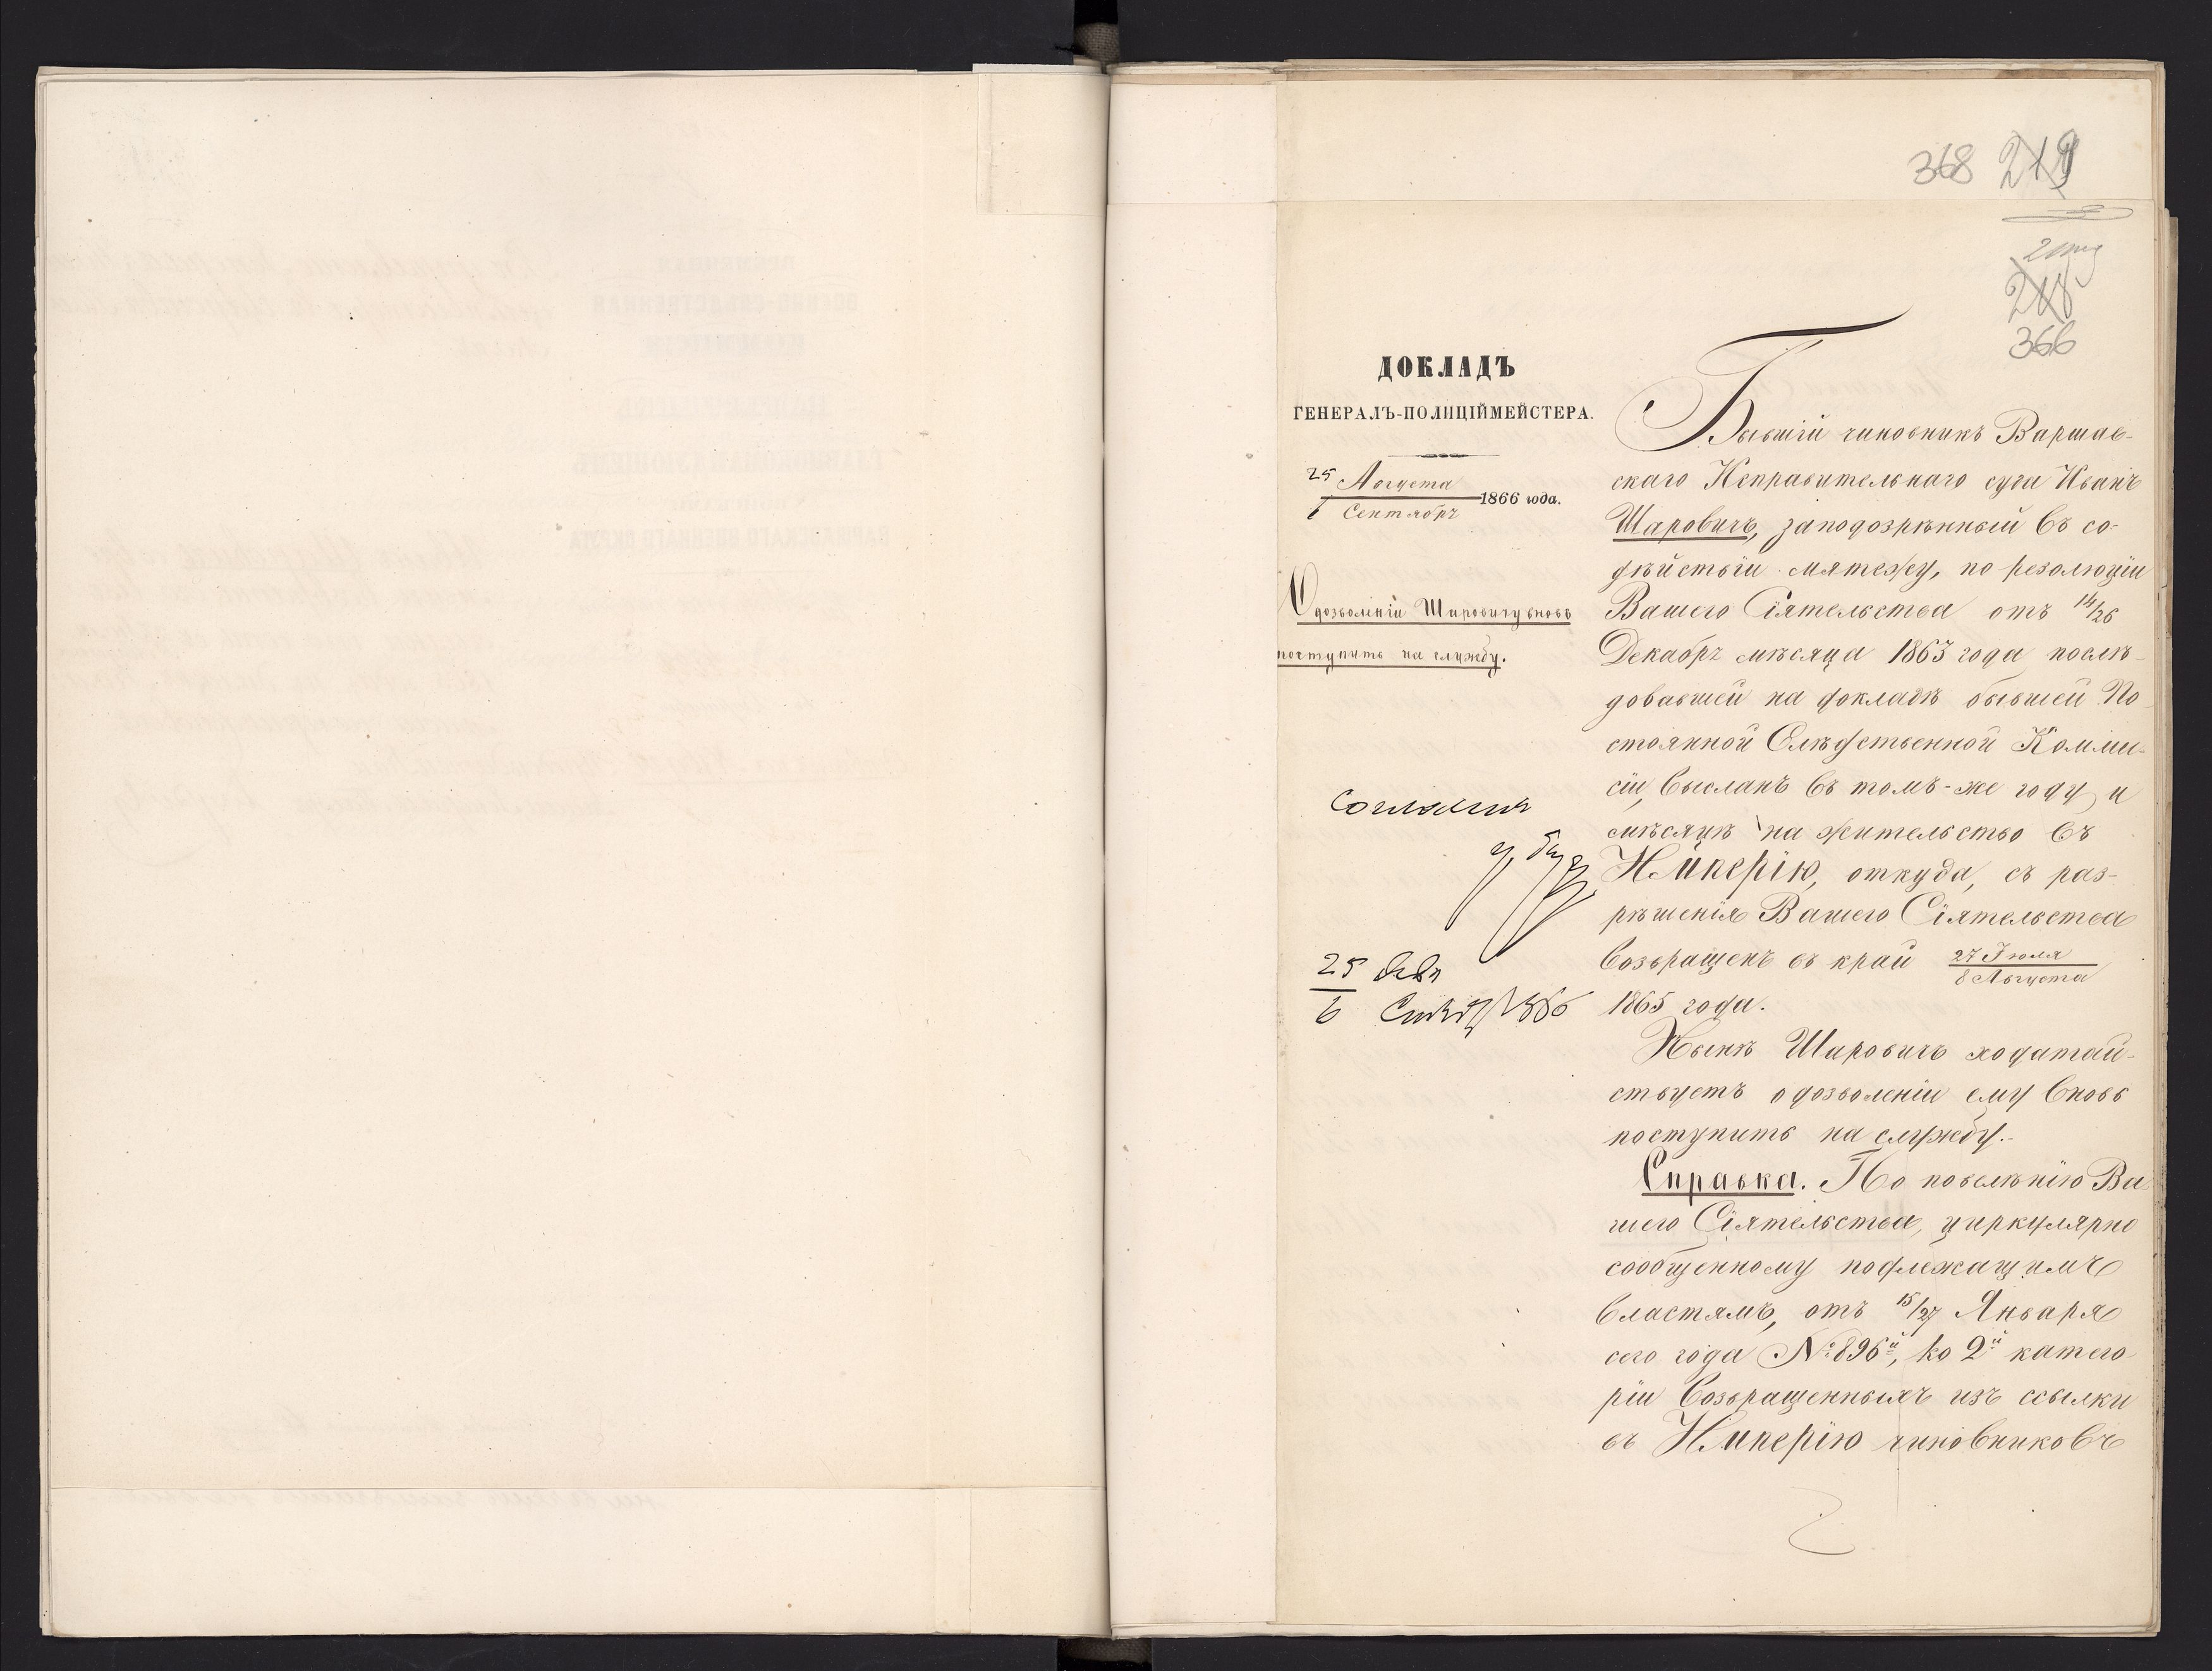 368 219
218
366
ДОКЛАДЪ
ГЕНЕРАЛЪ-ПОЛИЦІЙМЕЙСТЕРА.
25 Августа
6 Сентябр 1866 года.
О дозволеніи Шаровичу вновь
поступить на службу.
Согласенъ
25 Авг
6 Сент 1866
Бывшій чиновникъ Варшав-
скаго Исправительнаго суда Иванъ
Шаровичъ, заподозрѣнный въ со-
дѣйствіи мятежу, по резолюціи
Вашего Сіятельства отъ 14/26
Декабр мѣсяца 1863 года послѣ-
довавшей на докладѣ бывшей По-
стоянной Слѣдственной Комми-
сіи, высланъ въ томъ-же году и
мѣсяцѣ на жительство въ
Имперію, откуда, съ раз-
рѣшенія Вашего Сіятельства
возвращенъ въ край 27 Іюля
8 Августа
1865 года.
Нынѣ Шаровичъ ходатай-
ствуетъ о дозволеніи ему вновь
поступить на службу.-
Справка. По повелѣнію Ва-
шего Сіятельства, циркулярно
сообщенному подлежащимъ
властямъ, отъ 15/27 Января
сего года № 896й, ко 2й катего
ріи возвращенныхъ изъ ссылки
въ Имперію чиновниковъ